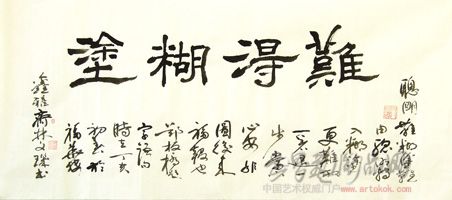 難得糊塗
聰明難糊塗難
由聰明轉
入糊塗
更難放
一著退一
步當下
心安非
圖後來
福報也
鄭板橋
時在丁亥
初春於
齋林文珠書
中国艺术权威门户 www.artokok.com